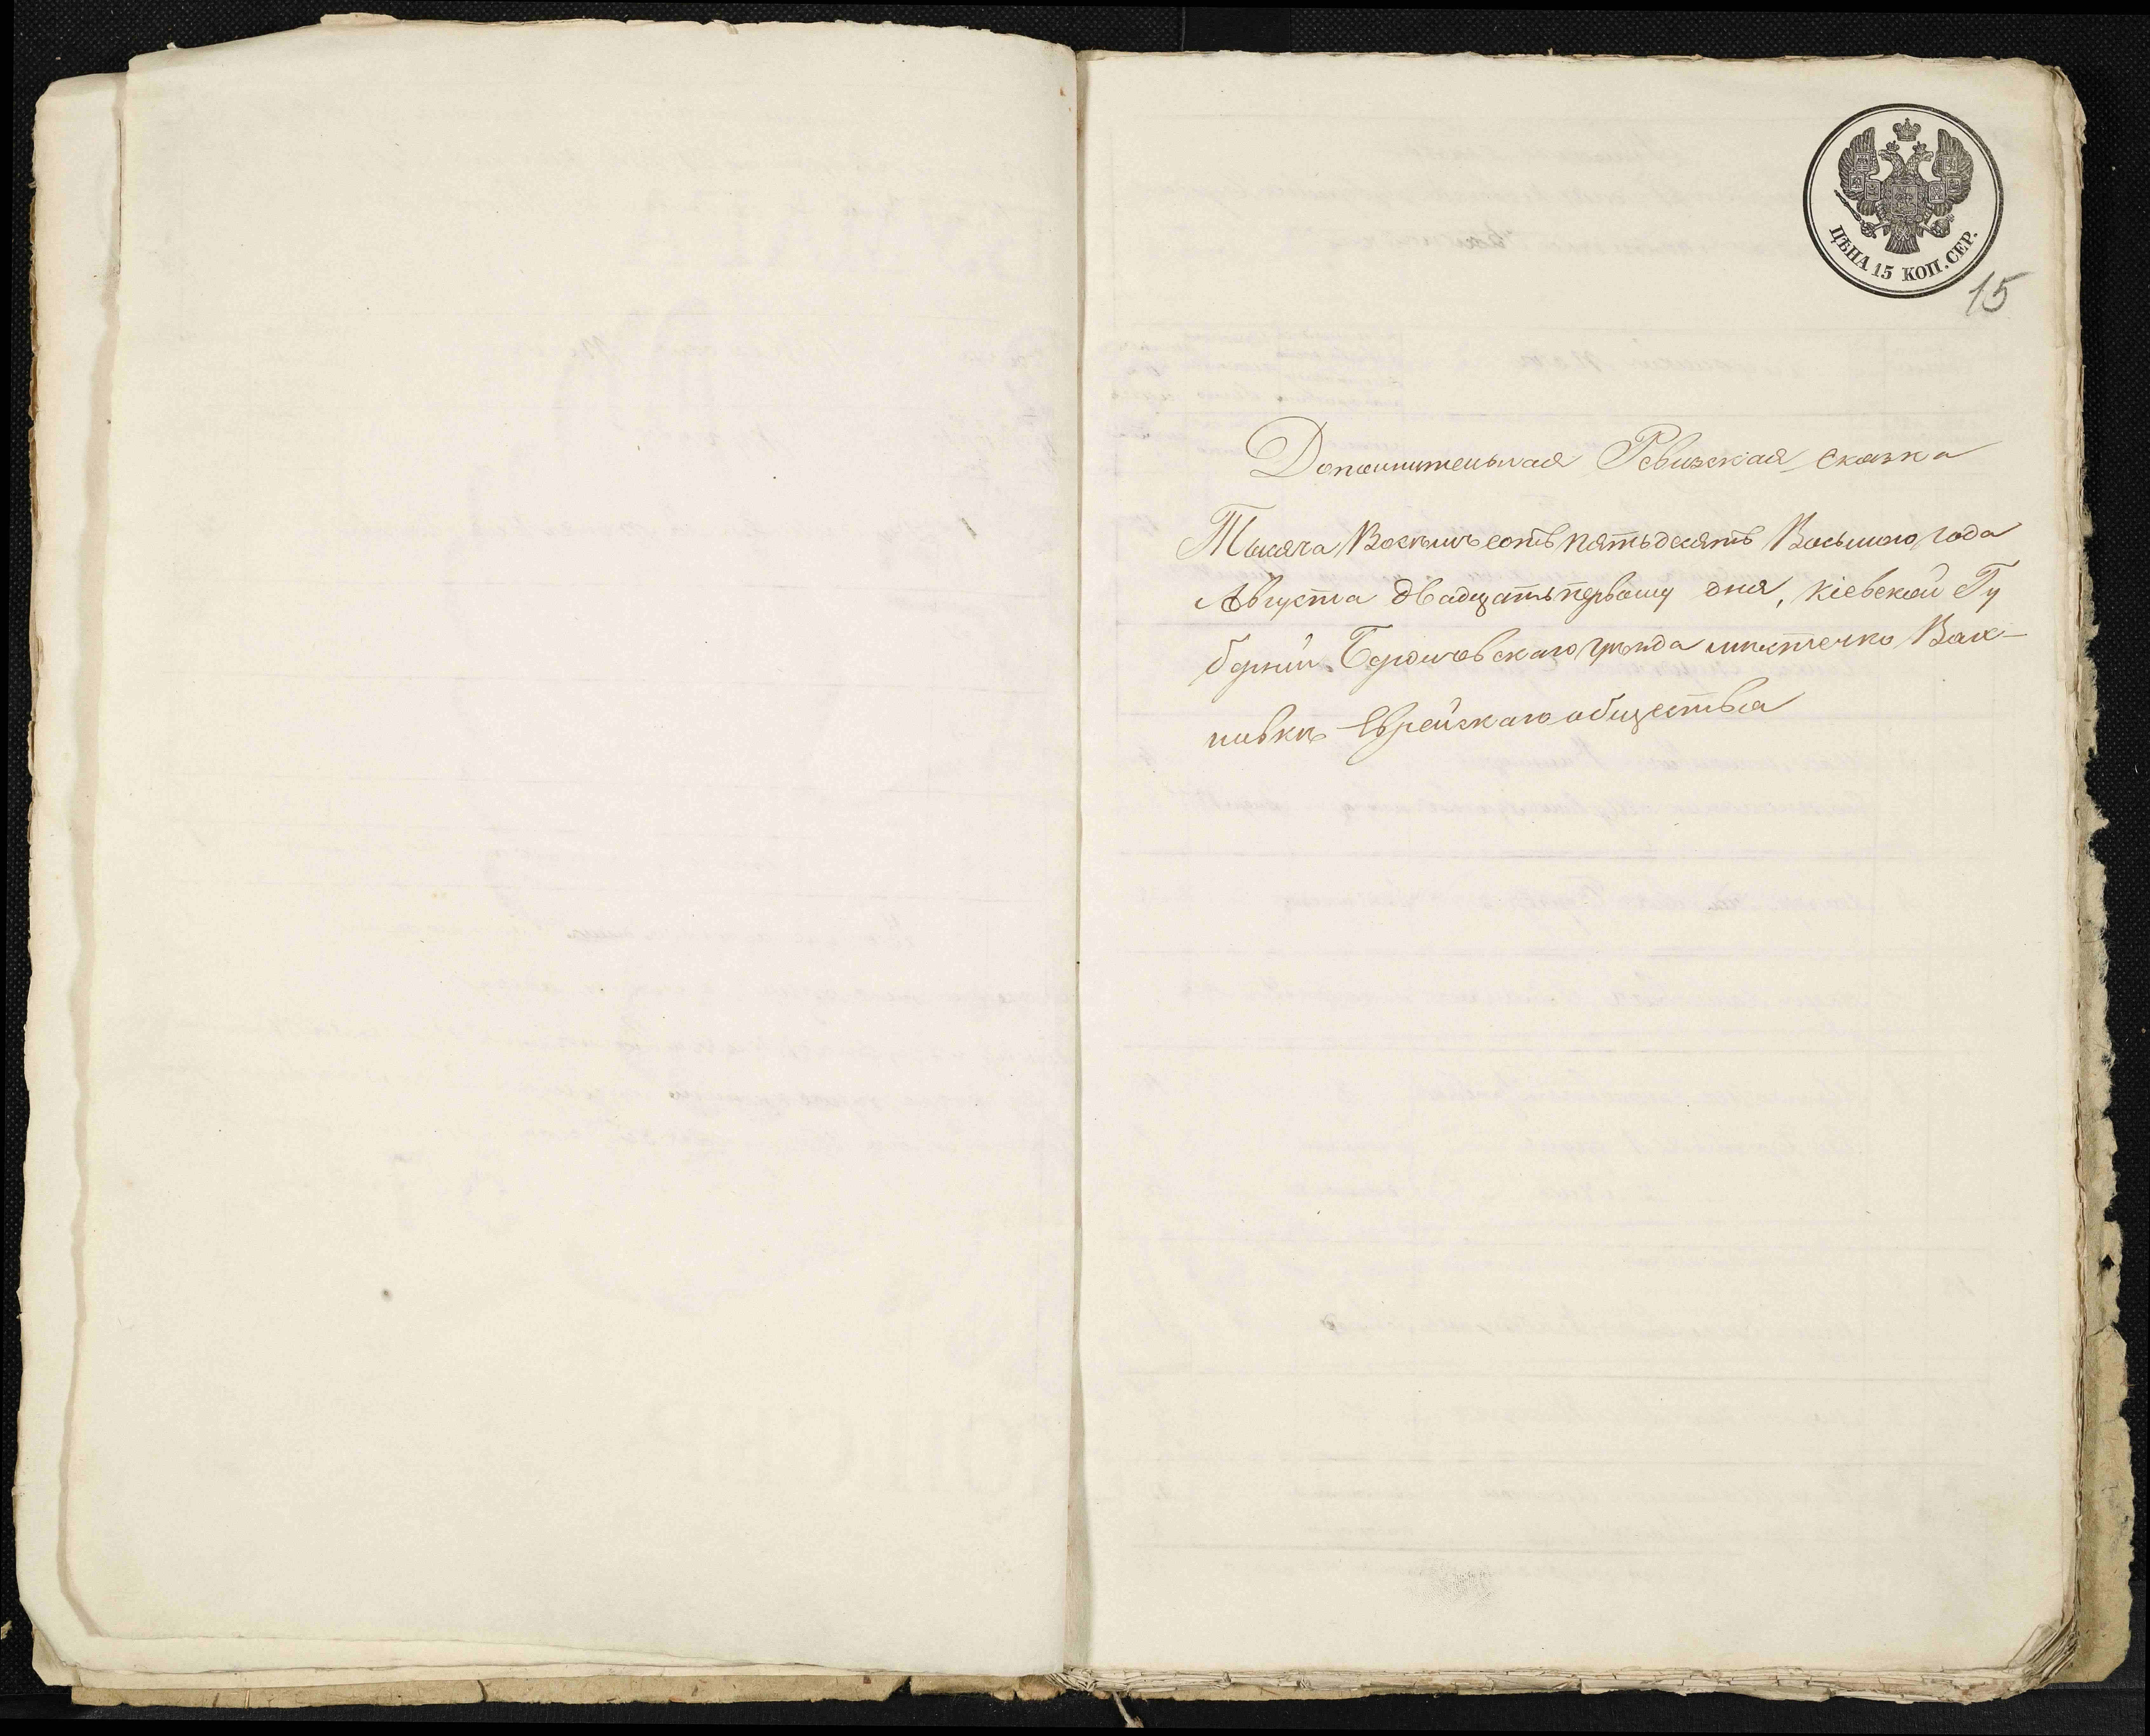 ЦѢНА 15 КОП. СЕР.
15
Дополнительная Ревизская сказка
Тысяча Восемьсотъ пятьдесятъ Восьмого года
Августа двадцать первому дня, Кіевской Гу
берніи Бердичовскаго уѣзда мѣстечко Вах-
новкѣ Еврейскаго общества